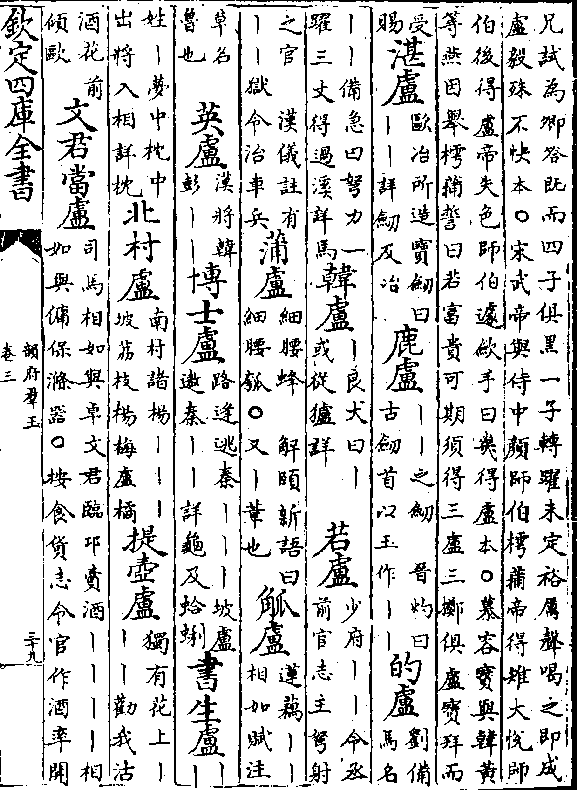 兄試為卿荅既而四子俱黒一子轉躍未定裕厲聲喝之即成
盧毅殊不快本○宋武帝與侍中顔師伯樗蒲帝得雉大悦師
伯後得盧帝失色師伯遽斂手曰幾得盧本○慕容寶與韓黄
等燕因舉樗蒱誓曰若富貴可期須得三盧三擲俱盧寶拜而
受賜 湛盧 歐冶所造寶劒曰丨丨詳劒及冶 鹿盧 丨丨之劒 晉灼曰古劒首以玉作丨丨 的盧 劉備馬名
丨丨備急曰努力一躍三丈得過溪詳馬 韓盧 丨良犬曰丨或從獹詳 若盧 少府丨丨令丞前官志主弩射
之官 漢儀註有丨丨獄令治車兵 蒲盧 細腰蜂 解頤新語曰細腰瓠○又丨葦也 觚盧 蓮藕丨丨相如賦注
草名魯也 英盧 漢將韓彭丨丨 博士盧 路逢逃秦丨丨丨坡盧遨秦丨丨詳龜及蛤蜊 書生盧 丨丨
姓丨夢中枕中出將入相詳枕 北村盧 南村諸楊丨丨丨坡荔枝楊梅盧橘 提壺盧 獨有花上丨丨丨勸我沽
酒花前傾歐 文君當盧 司馬相如與卓文君臨邛賣酒丨丨丨丨相如與傭保滌器○按食貨志令官作酒率開
欽定四庫全書
韻府羣玉
卷三
三十九